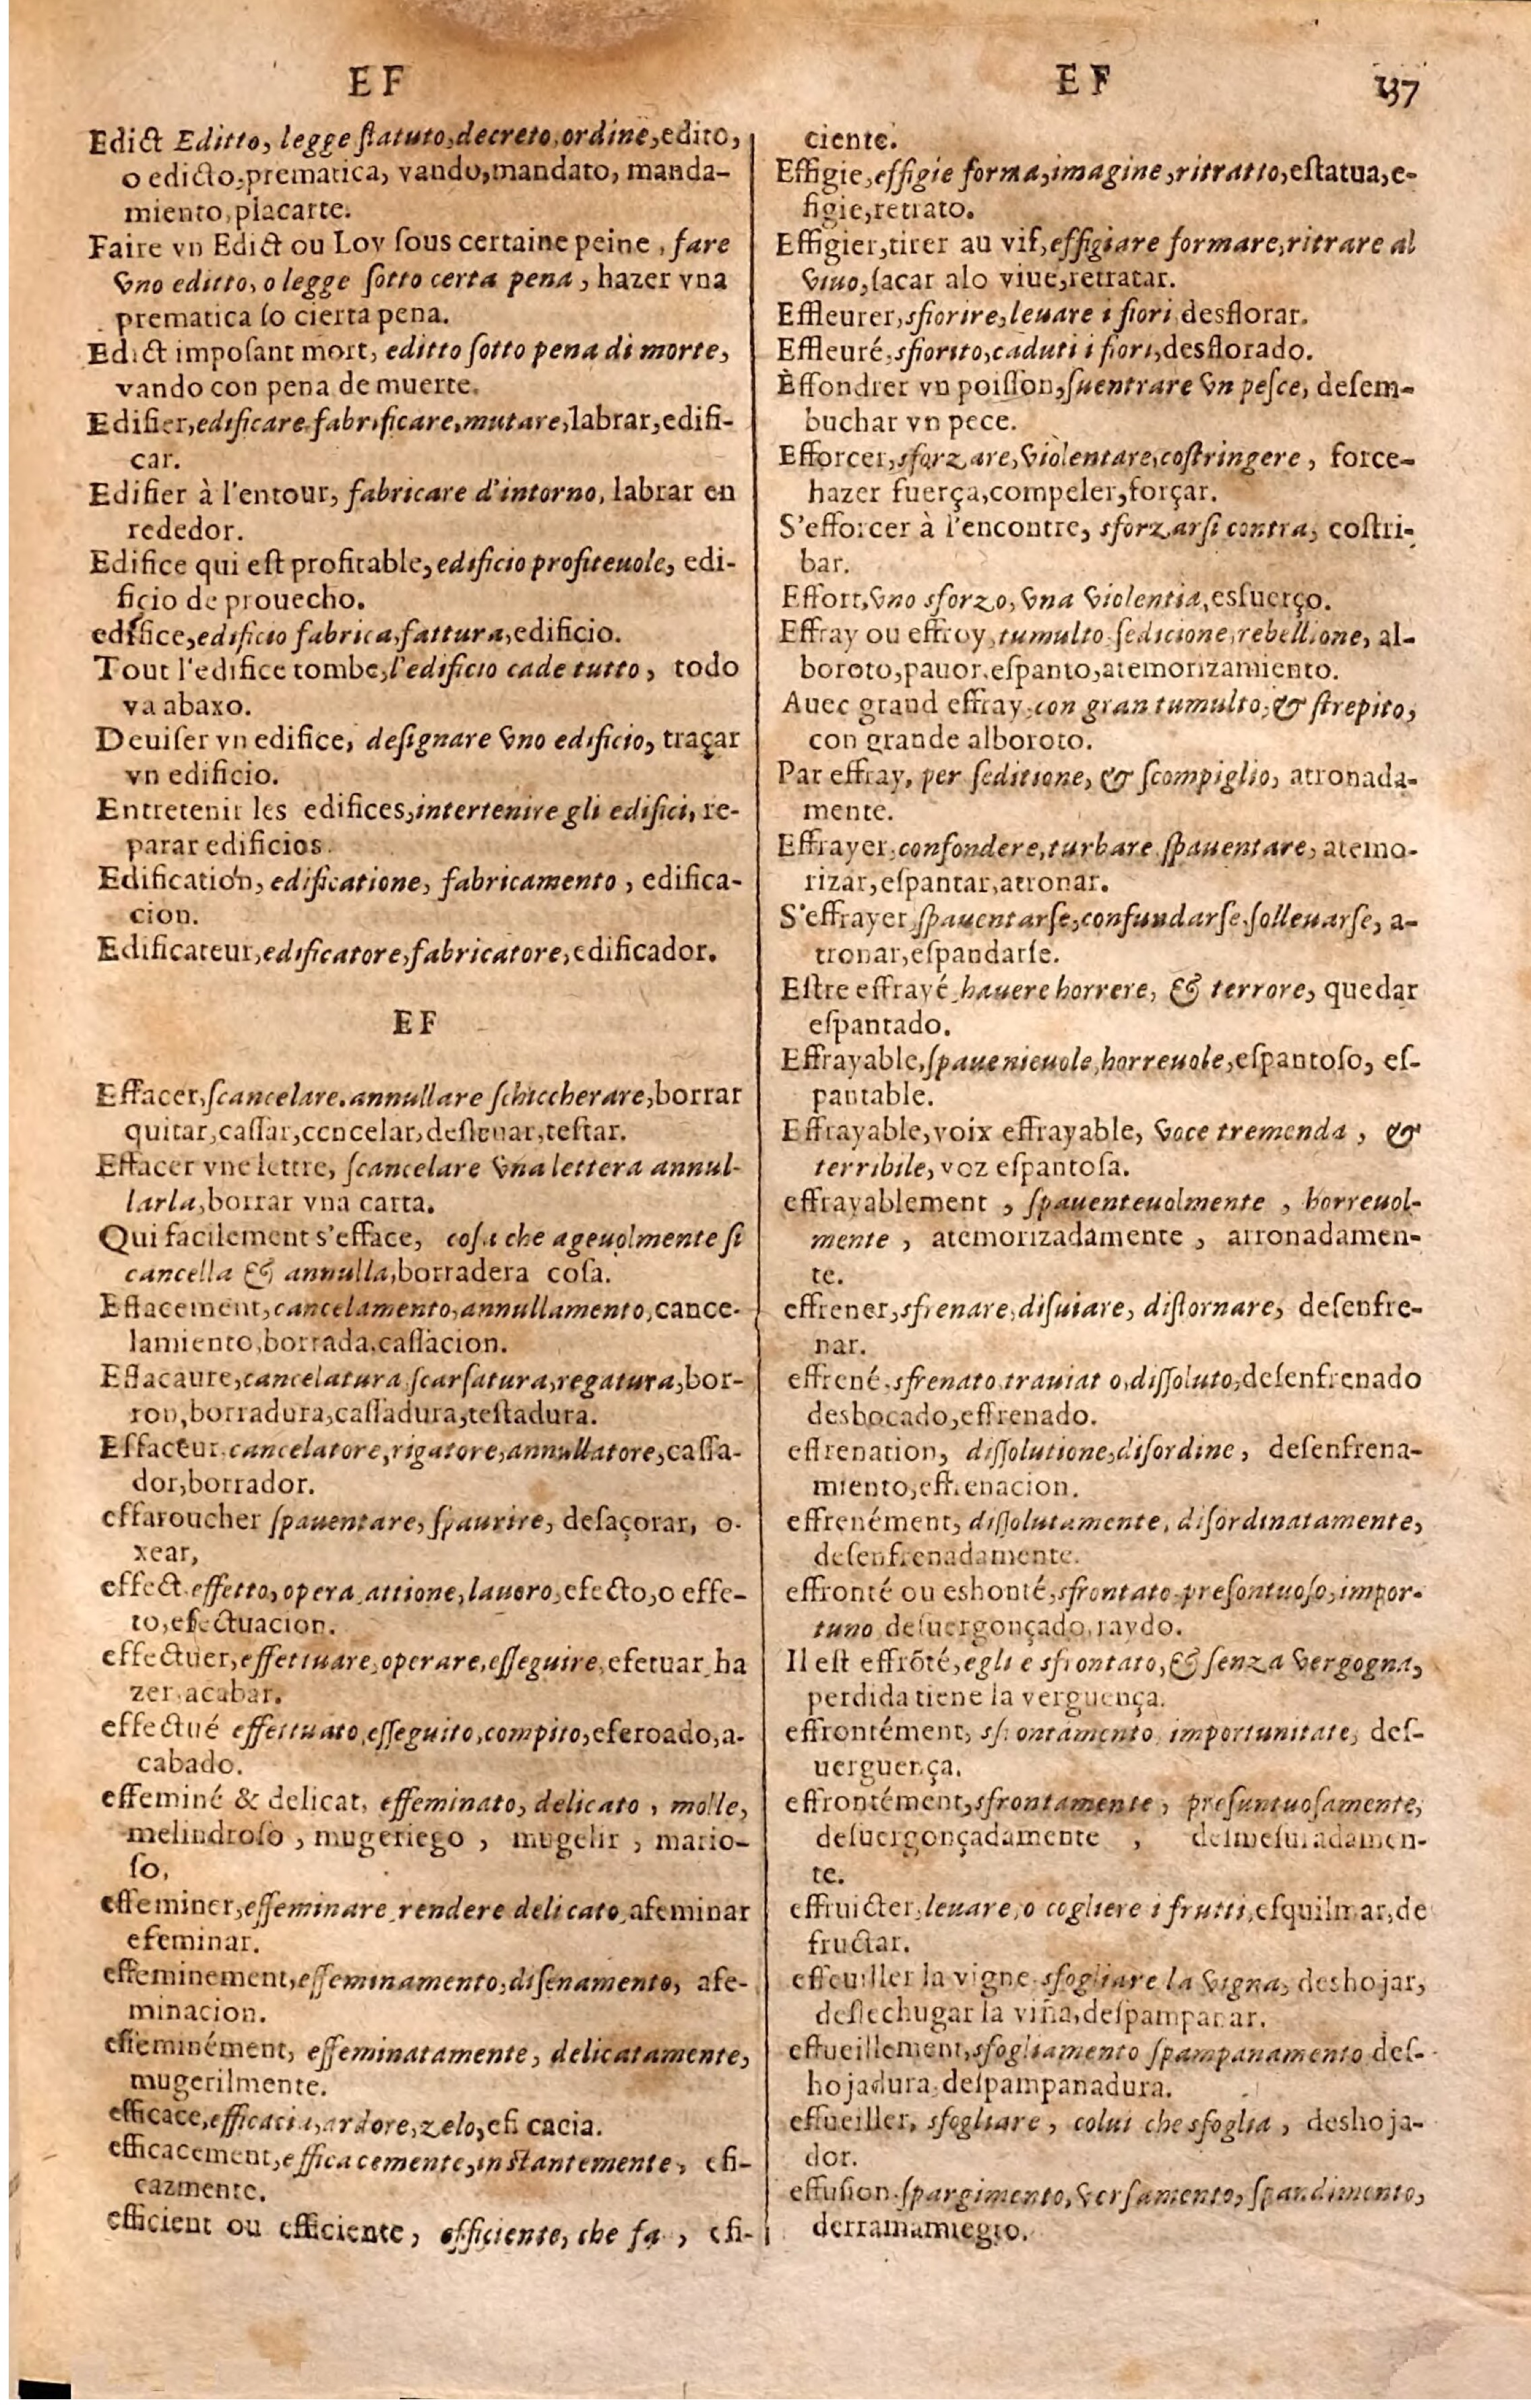 E F
Edict Editto, legge ſtatuto, decreto, ordine, edito,
o edicto, prematica, vando, mandato, manda-
miento, placarte.
Faire vn Edict ou Loy ſous certaine peine, fare
vno editto, o legge ſotto certa pena, hazer vna
prematica ſo cierta pena.
Edict impoſant mort, editto ſotto pena di morte,
vando con pena de muerte.
Edifier, edificare fabrificare, mutare, labrar, edifi-
car.
Edifier à l'entour, fabricare d'intorno, labrar en
rededor.
Edifice qui eſt profitable, edificio profiteuole, edi-
fiçio de prouecho.
edifice, edificio fabrica, fattura, edificio.
Tout l'edifice tombe, l'edificio cade tutto, todo
va abaxo.
Deuiſer vn edifice, deſignare vno edificio, traçar
vn edificio.
Entretenir les edifices, intertenire gli edifici, re-
parar edificios.
Edification, edificatione, fabricamento, edifica-
cion.
Edificateur, edificatore, fabricatore, edificador.
E F
Effacer, ſcancelare, annullare ſchiccherare, borrar
quitar, caſſar, cencelar, desleuar, teſtar.
Effacer vne lettre, ſcancelare vna lettera annul-
larla, borrar vna carta.
Qui facilement s'efface, coſa che ageuolmente ſi
cancella & annulla, borradera coſa.
Effacement, cancelamento, annullamento, cance-
lamiento, borrada, caſſacion.
Effacaure, cancelatura ſcarſatura, regatura, bor-
ron, borradura, caſſadura, teſtadura.
Effaceur, cancelatore, rigatore, annullatore, caſſa-
dor, borrador.
effaroucher ſpauentare, ſpaurire, deſaçorar, o-
xear,
effect effetto, opera, attione, lauoro, efecto, o effe-
to, efectuacion.
effectuer, effettuare, operare, eſſeguire, efetuar ha
zer acabar.
effectué effettuato, eſſeguito, compito, eferoado, a-
cabado.
effeminé & delicat, effeminato, delicato, molle,
melindroſo, mugeriego, mugelir, mario-
ſo,
effeminer, effeminare, rendere delicato, afeminar
efeminar.
effeminement, effeminamento, diſenamento, afe-
minacion.
effeminément, effeminatamente, delicatamente,
mugerilmente.
efficace, efficacia, ardore, zelo, efi cacia.
efficacement, effica cemente, inſtantemente, efi-
cazmente.
efficient ou efficiente, efficiente, che fa, efi-
E F 137
ciente.
Effigie, effigie forma, imagine, ritratto, eſtatua, e-
figie, retrato.
Effigier, tirer au vif, effigiare formare, ritrare al
viuo, ſacar alo viue, retratar.
Effleurer, sfiorire, leuare i fiori desflorar.
Effleuré, sfiorito, caduti i fiori, desflorado.
Èffondrer vn poiſſon, ſuentrare vn peſce, deſem-
buchar vn pece.
Efforcer, sforzare, violentare, coſtringere, force-
hazer fuerça, compeler, forçar.
S'efforcer à l'encontre, sforzarſi contra, coſtri-
bar.
Effort, vno sforzo, vna violentia, esfuerço.
Effray ou effroy, tumulto ſedicione, rebellione, al-
boroto, pauor, eſpanto, atemorizamiento.
Auec grand effray, con gran tumulto, & ſtrepito,
con grande alboroto.
Par effray, per ſeditione, & ſcompiglio, atronada-
mente.
Effrayer, confondere, turbare ſpauentare, atemo-
rizar, eſpantar, atronar.
S'effrayer ſpauentarſe, confundarſe, ſolleuarſe, a-
tronar, eſpandarſe.
Eſtre effrayé hauere horrere, & terrore, quedar
eſpantado.
Effrayable, ſpauenieuole, horreuole, eſpantoſo, eſ-
pantable.
Effrayable, voix effrayable, voce tremenda, &
terribile, voz eſpantoſa.
effrayablement, ſpauenteuolmente, horreuol-
mente, atemorizadamente, arronadamen-
te.
effrener, sfrenare, diſuiare, diſtornare, deſenfre-
nar.
effrené, sfrenato, trauiat o, diſſoluto, deſenfrenado
desbocado, effrenado.
effrenation, diſſolutione, diſordine, deſenfrena-
miento, effrenacion.
effrenément, diſſolutamente, diſordinatamente,
deſenfrenadamente.
effronté ou eshonté, sfrontato, preſontuoſo, impor-
tuno deſuergonçado, raydo.
Il eſt effrõté, egli e sfrontato, & ſenza vergogna,
perdida tiene la verguença.
effrontément, sfrontamento, importunitate, deſ-
uerguença.
effrontément, sfrontamente, preſuntuoſamente,
deſuergonçadamente, deſmeſuradamen-
te.
effruicter, leuare, o cogliere i frutti, eſquilmar, de
fructar.
effeuiller la vigne, sfogliare la vigna, deshojar,
deslechugar la viña, deſpampanar.
effueillement, sfogliamento ſpampanamento deſ-
hojadura, deſpampanadura.
effueiller, sfogliare, colui che sfoglia, deshoja-
dor.
effusion ſpargimento, verſamento, ſpandimento,
derramamiegto.